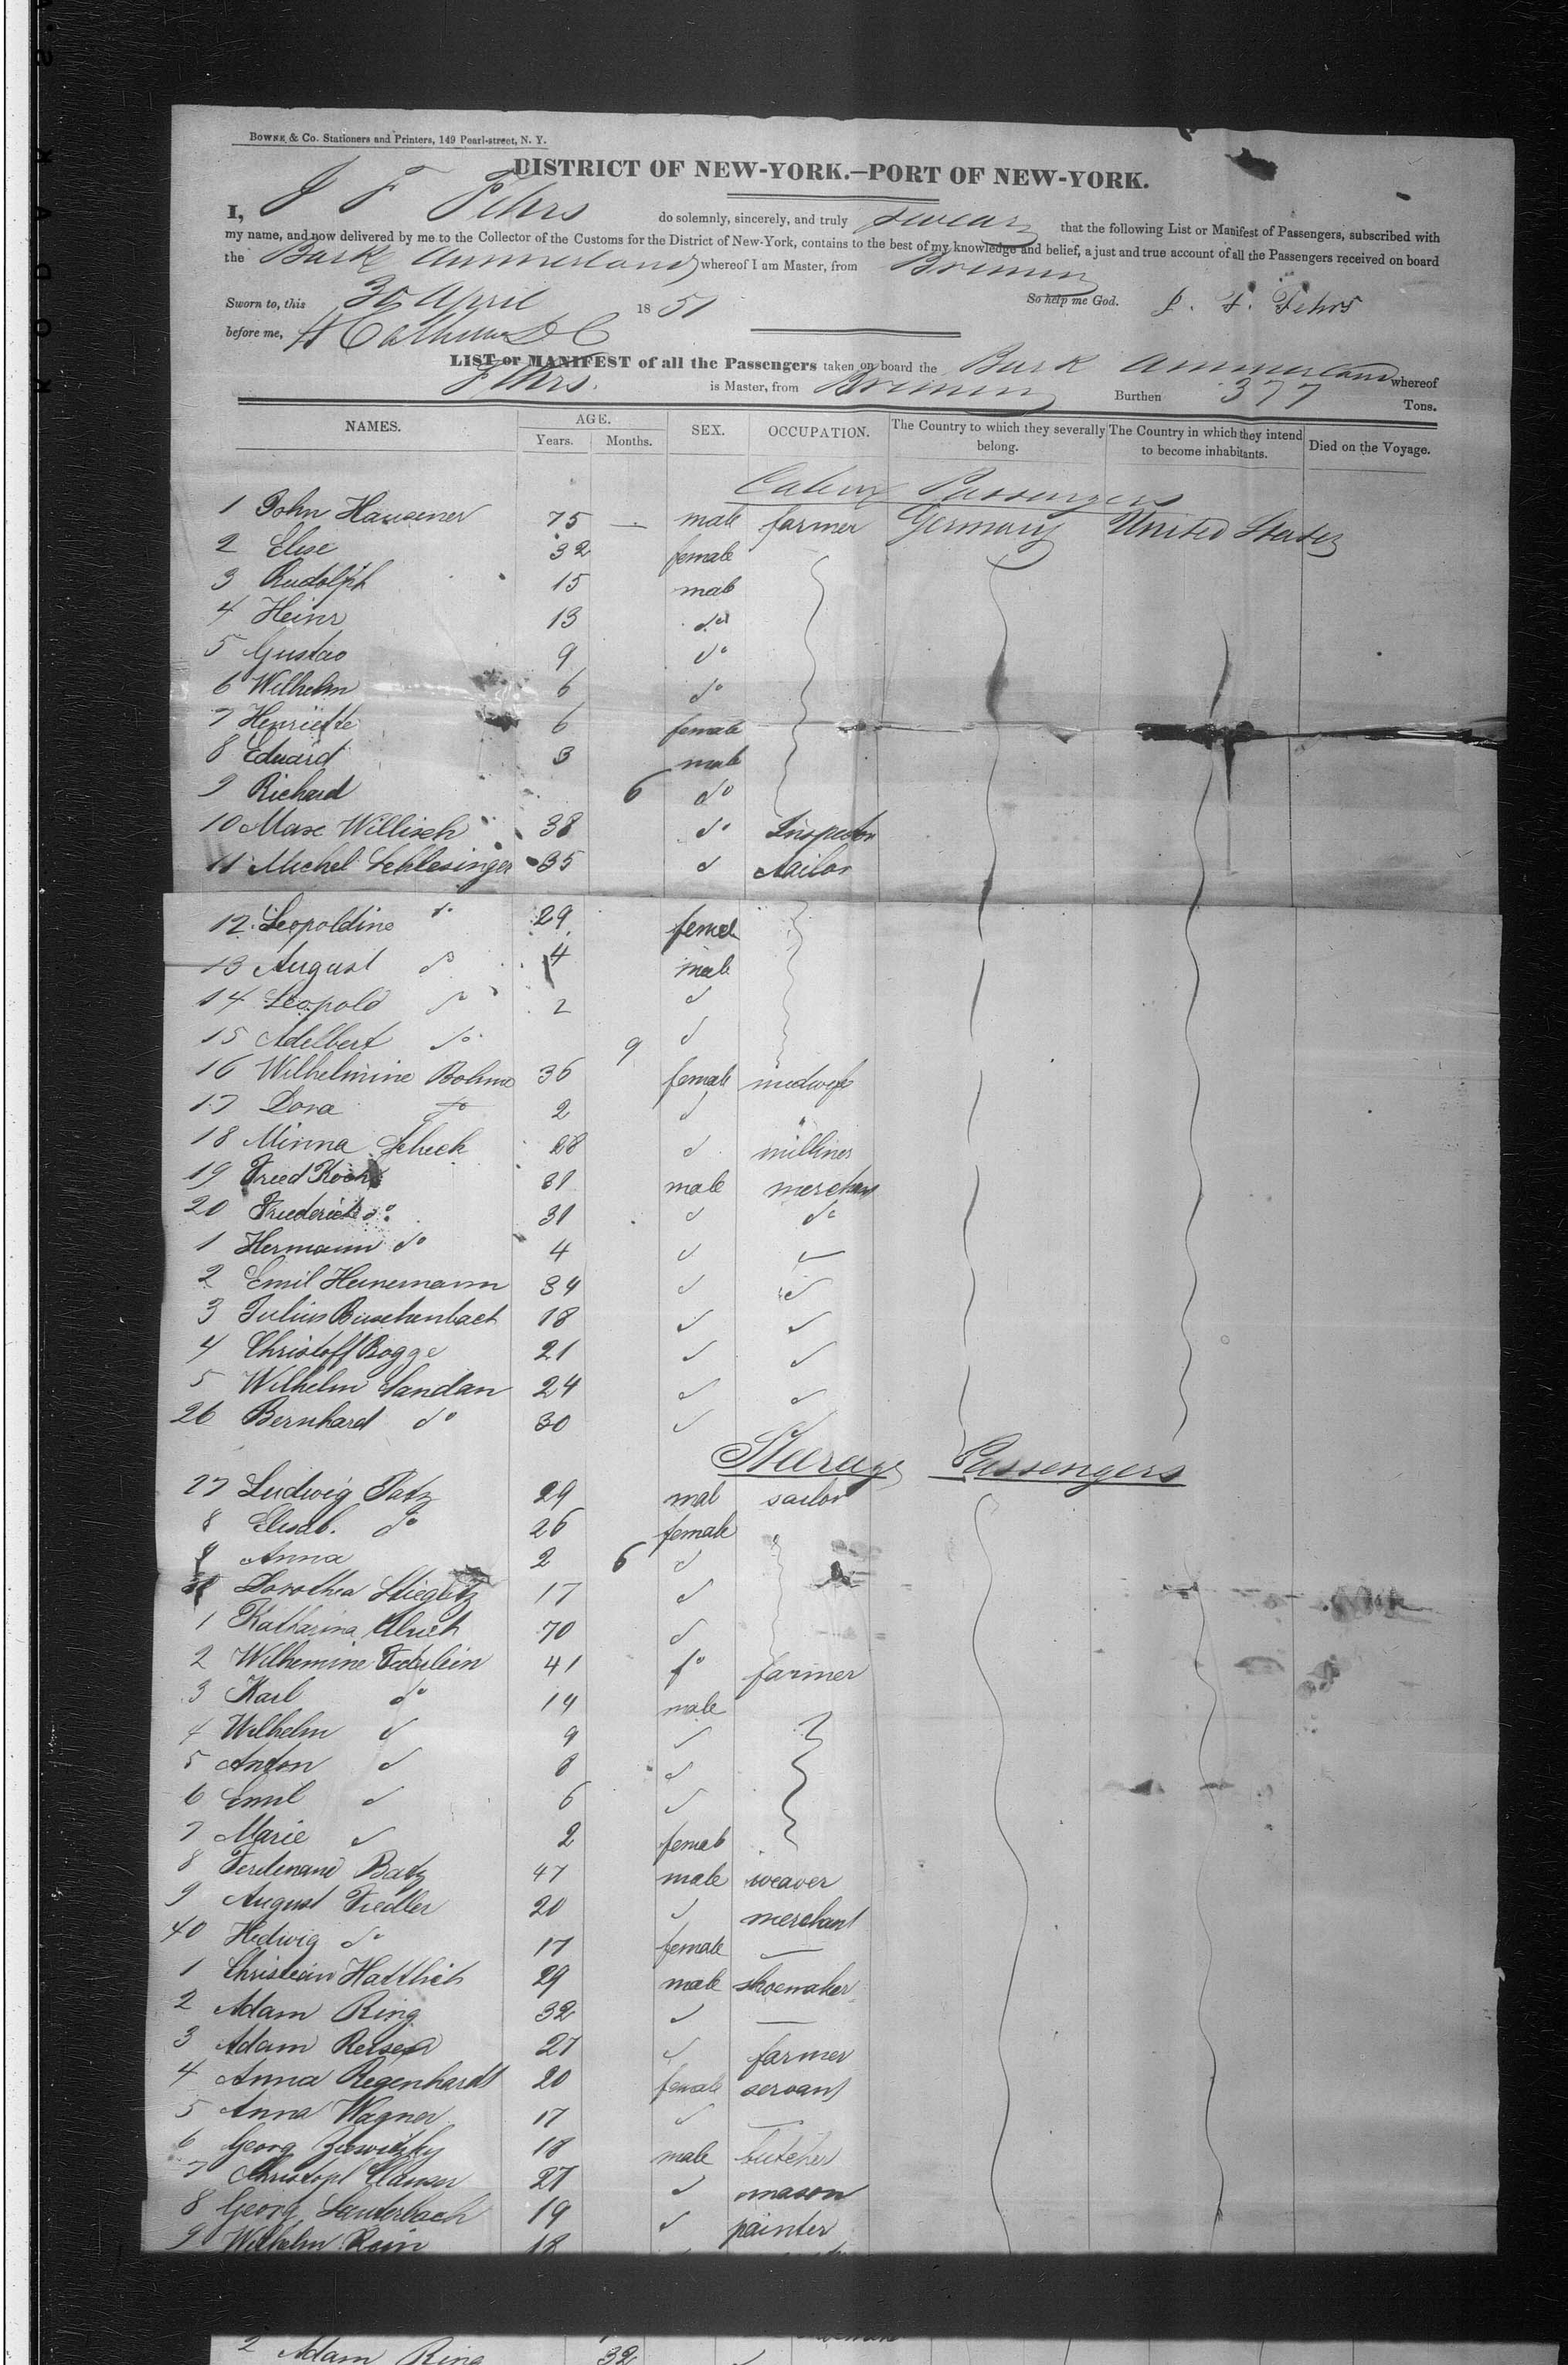 BOWNE & Co. Stationers and Printers, 149 Pearl-street, N. Y.
DISTRICT OF NEW-YORK.—PORT OF NEW-YORK.
I, J F Fehrs do solemnly, sincerely, and truly swear that the following List or Manifest of Passengers, subscribed with
my name, and now delivered by me to the Collector of the Customs for the District of New-York, contains to the best of my knowledge and belief, a just and true account of all the Passengers received on board
the Bark Ammerland whereof I am Master, from Bremen
Sworn to, this 30 April 1851 So help me God. J. F. Fehrs
before me,
LIST or MANIFEST of all the Passengers taken on board the Bark Ammerland whereof
Fehrs. is Master, from Bremen Burthen 377 Tons.
NAMES. AGE. Years. Months. SEX. OCCUPATION. The Country to which they severally belong. The Country in which they intend to become inhabitants. Died on the Voyage.
Cabin Passengers
1 John Hausener 75 — male farmer Germany United States
2 Elise 32 female
3 Rudolph 15 male
4 Heinr 13 do
5 Gustav 9 do
6 Wilhelm 6 do
7 Henriette 6 female
8 Eduard 3 male
9 Richard 6 do
10 Max Willisch 38 do Inspector
11 Michel Schlesinger 35 d
12 Leopoldine do 29 female
13 August do 4 male
14 Leopold do 2 d
15 Adelbert do 9 d
16 Wilhelmine Bohme 36 female midwife
17 Dora do 2 d
18 Minna Scheck 28 d milliner
19 Fried Koch 31 male merchant
20 Friederich do 31 d do
1 Hermann do 4 d
2 Emil Heinemann 34 d d
3 Julius Buschenbach 18 d d
4 Christoff Bogge 21 d d
5 Wilhelm Sandan 24 d d
26 Bernhard do 30 d
Steerage Passengers
27 Ludwig Patz 29 mal sailor
8 Elisab. do 26 female
9 Anna 2 6 d
30 Dorothea Stieglitz 17 d
1 Katharina Ulrich 70 d
2 Wilhemine 41 do farmer
3 Karl do 14 male
4 Wilhelm d 9 d
5 Anton d 8 d
6 Emil d 6 d
7 Marie d 2 female
8 Ferdinand Batz 47 male weaver
9 August Fiedler 20 d merchant
40 Hedwig do 17 female —
1 Christian Hattlich 29 male shoemaker
2 Adam Ring 32 d —
3 Adam 27 d farmer
4 Anna Regenhardt 20 female servant
5 Anna Wagner 17 d —
6 Georg 18 male butcher
7 Christopl Clauser 27 d mason
8 Georg Lauterbach 19 d painter
9 Wilhelm Rein 18
2 Adam Ring 32